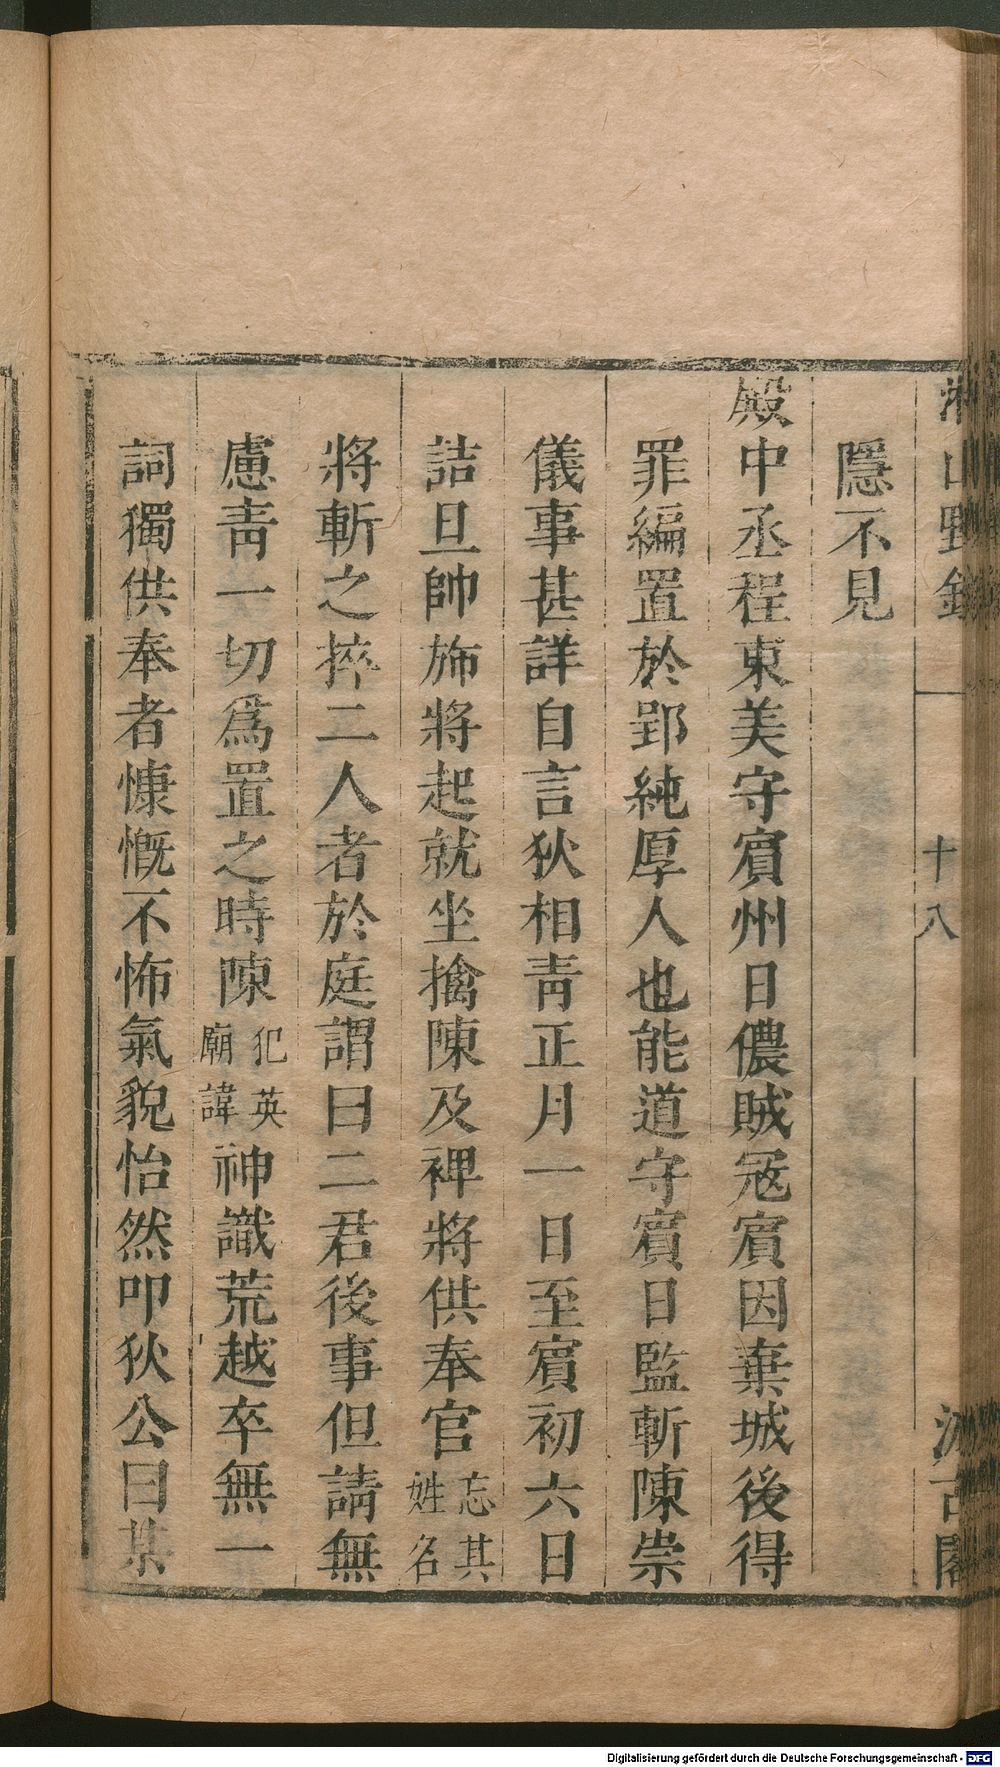 湘山野錄 十八 汲古閣
隱不見
殿中丞程東美守賓州日儂賊冦賓因棄城後得
罪編置於郢純厚人也能道守賓日監斬陳崇
儀事甚詳自言狄相靑正月一日至賓初六日
詰旦帥旆將起就坐擒陳及裨將供奉官忘其姓名
將斬之捽二人者於庭謂曰二君後事但請無
慮靑一切爲置之時陳犯英廟諱神識荒越卒無一
詞獨供奉者慷慨不怖氣貌怡然叩狄公曰某
Digitalisierung gefördert durch die Deutsche Forschungsgemeinschaft - DFG